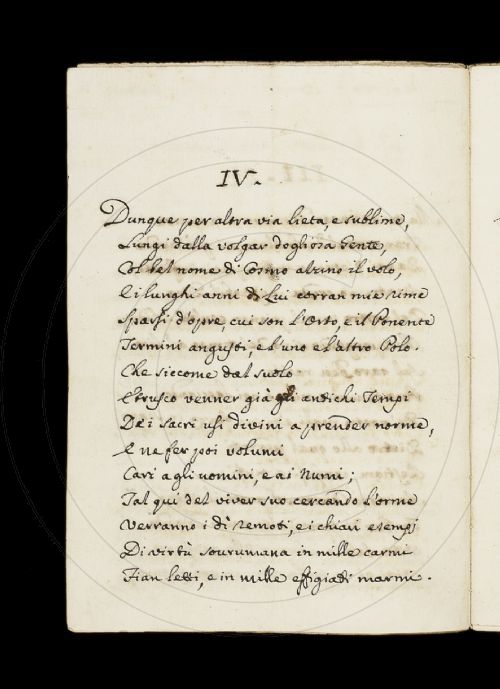 IV.
Dunque per altra via lieta, e sublime,
Lungi dalla volgar dogliosa Gente,
Col bel nome di Cosmo alzino il volo,
E i lunghi anni di Lui corran mie rime
Sparsi d'opre, cui son l'Orto, e il Ponente
Termini angusti, e l'uno e l'altro Polo.
Che siccome dal suolo
Etrusco venner già gli antichi Tempi
De i sacri usi divini a prender norme,
E ne fer poi volumi
Cari a gli uomini, e a i Numi;
Tal qui del viver suo cercando l'orme
Verranno i dì remoti, e i chiari esempj
Di virtù sovrumana in mille carmi
Fian letti, e in mille effigiati marmi.